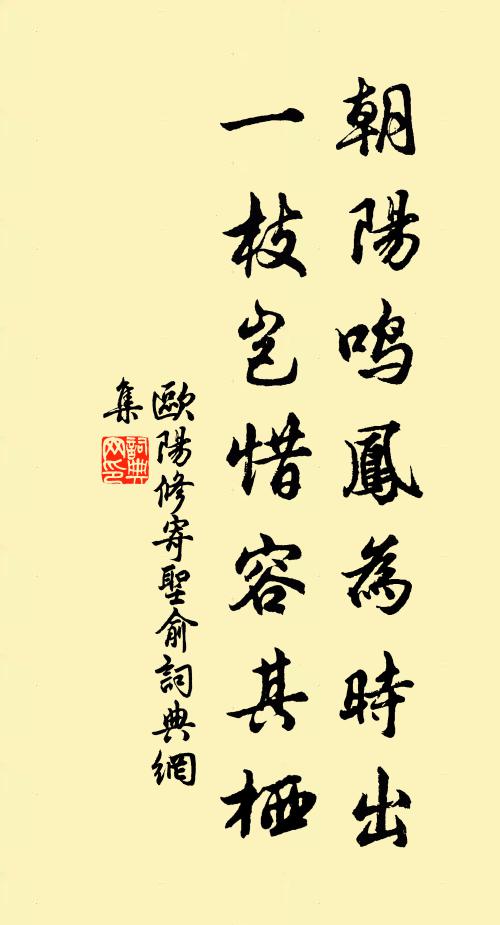 朝陽鸣鳳為時出
一枝岂惜容其栖
歐陽修寄聖俞詞典網
集
詞典
网印